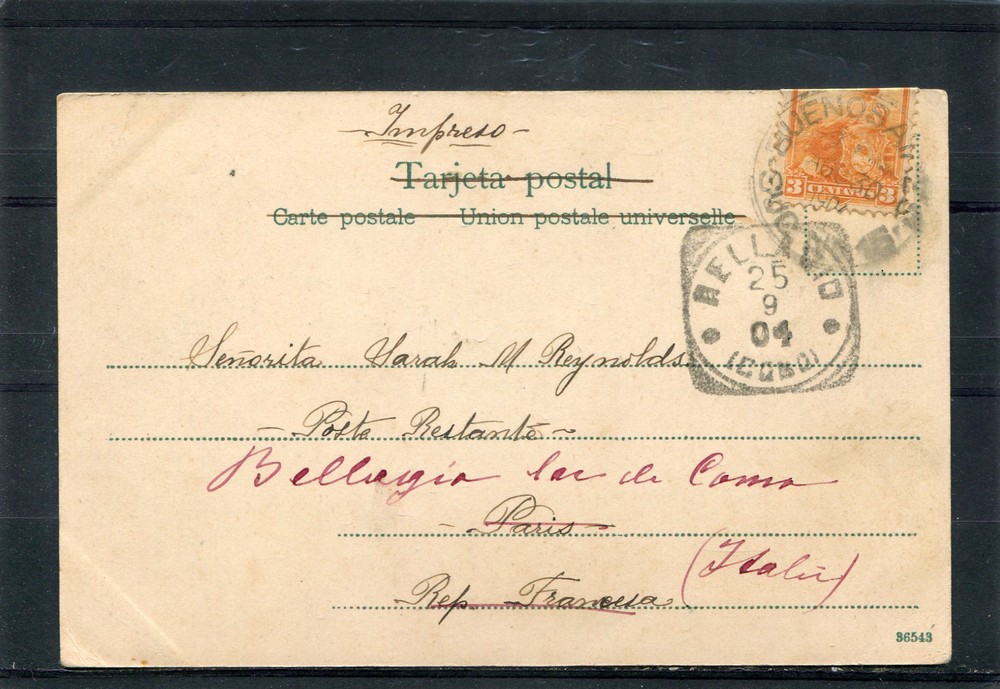 —Impreso—
Tarjeta postal
Carte postale Union postale universelle
BUENOS AI
3 CENTAVOS 3
BELLAGIO
25
9
04
(COMO)
Señorita Sarah M Reynolds
— Poste Restante ~
Bellagio lac de Como
– Paris
(Italie)
Rep. Francesa
36543